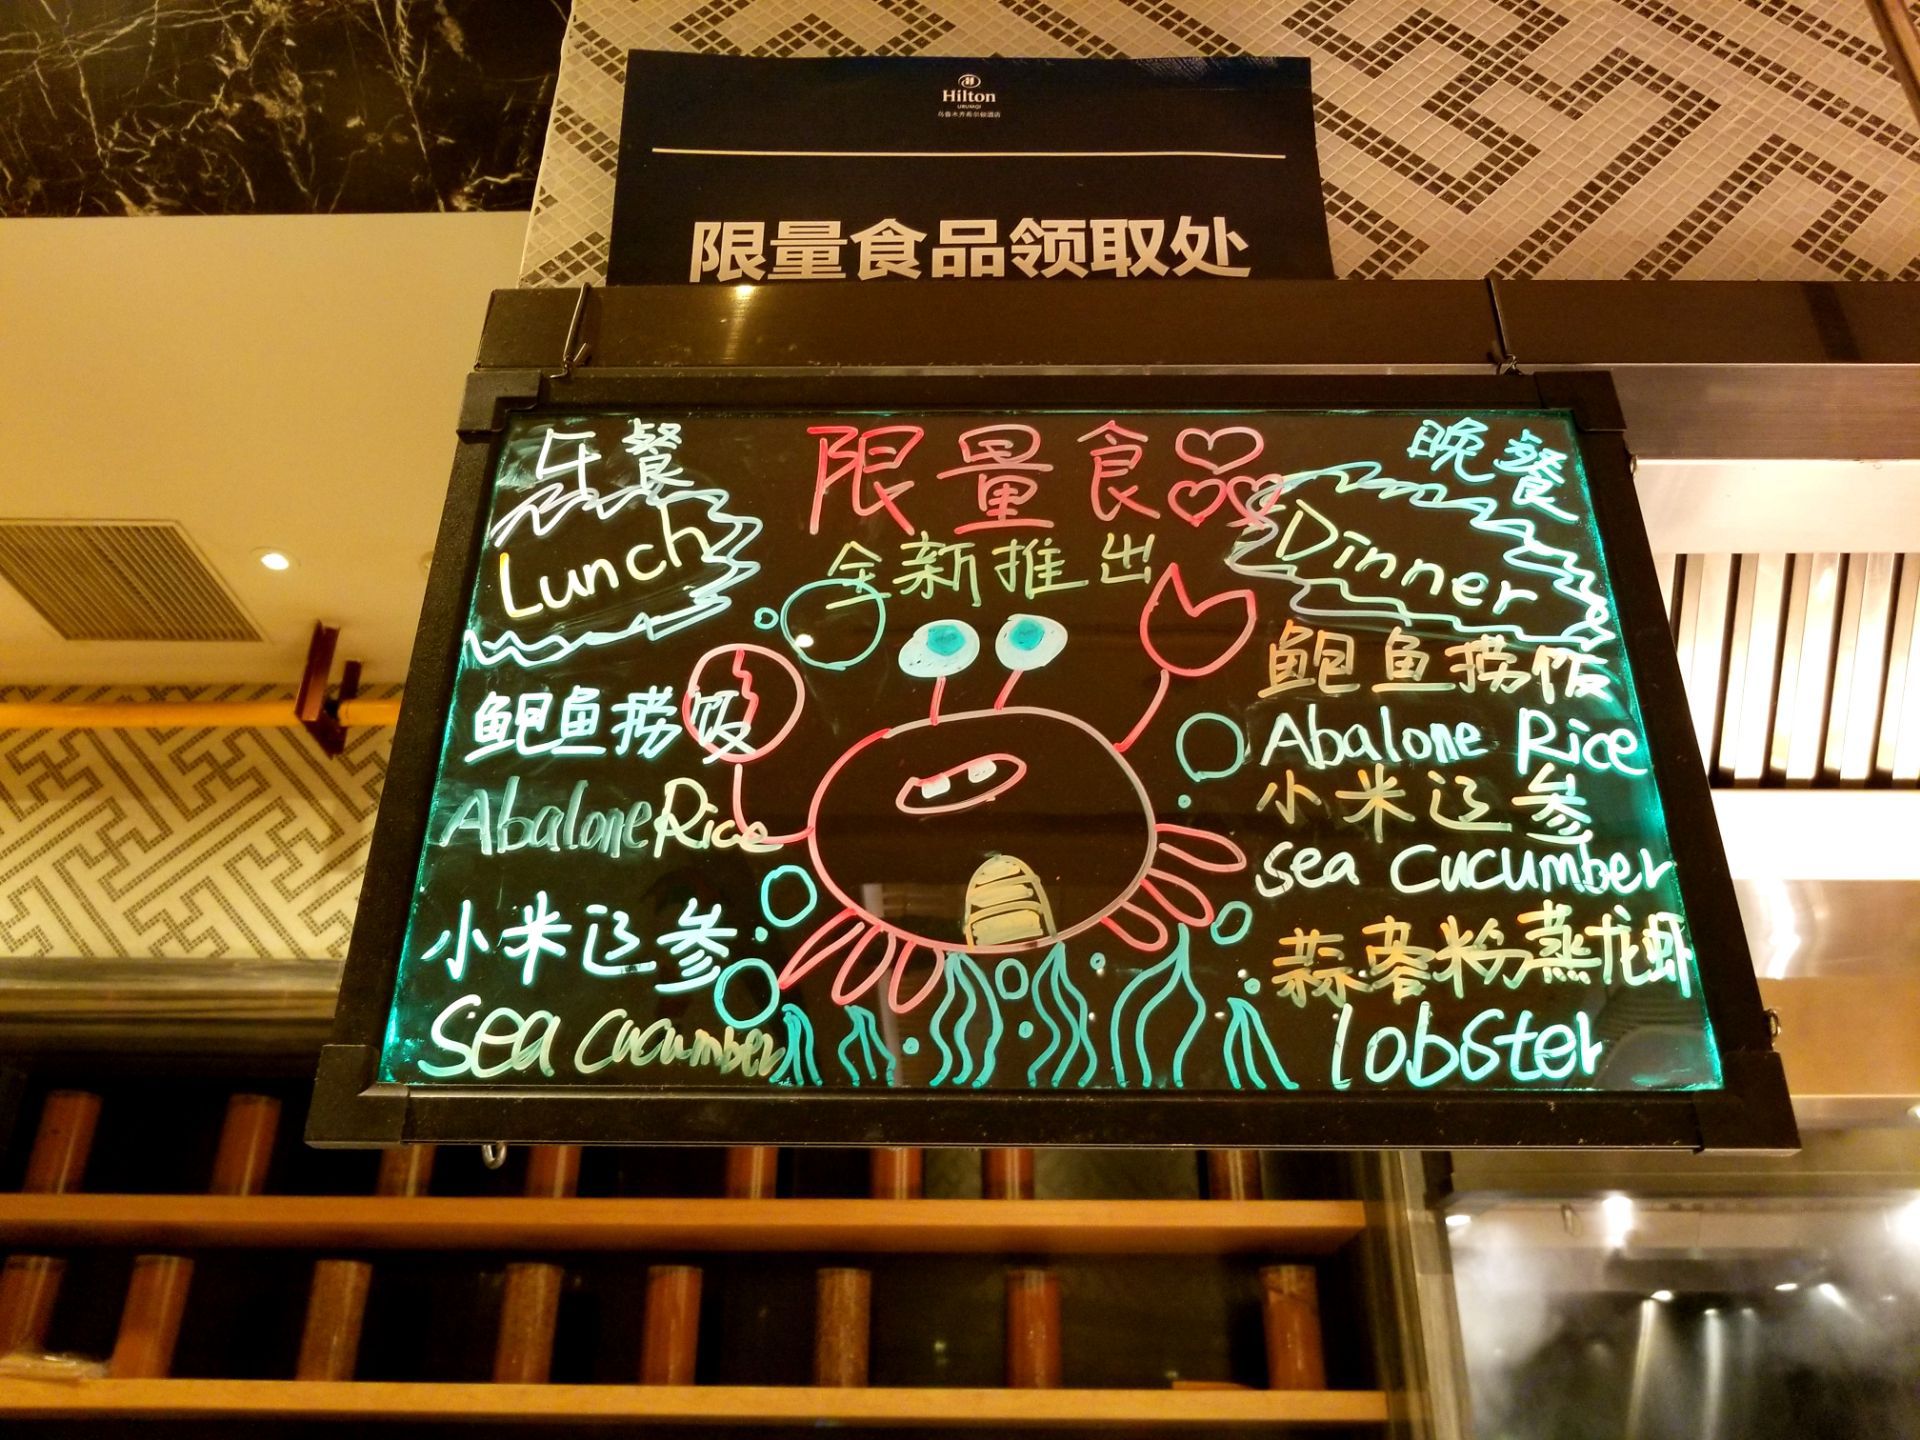 Hilton
URUMQI
乌鲁木齐希尔顿酒店
限量食品领取处
限量食品
全新推出
午餐
Lunch
鲍鱼捞饭
Abalone Rice
小米辽参
Sea cucumber
晚餐
Dinner
鲍鱼捞饭
Abalone Rice
小米辽参
sea cucumber
蒜蓉粉蒸龙虾
lobster